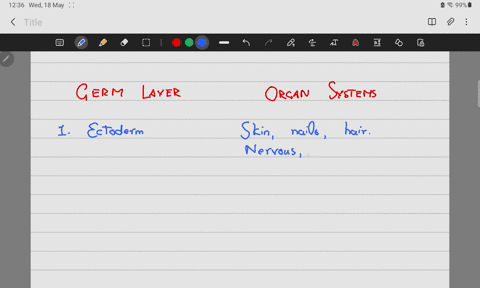 12:36 Wed, 18 May
99%
Title
GERM LAYER ORGAN SYSTEMS
1. Ectoderm Skin, nails, hair.
Nervous,